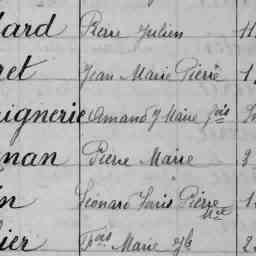 lard Pierre Julien
ret Jean Marie Pierre 1
ignerie Amand J Marie fois
nan Pierre Marie
in Léonard Louis Pierre
Mce
ier Fois Marie Jh 2